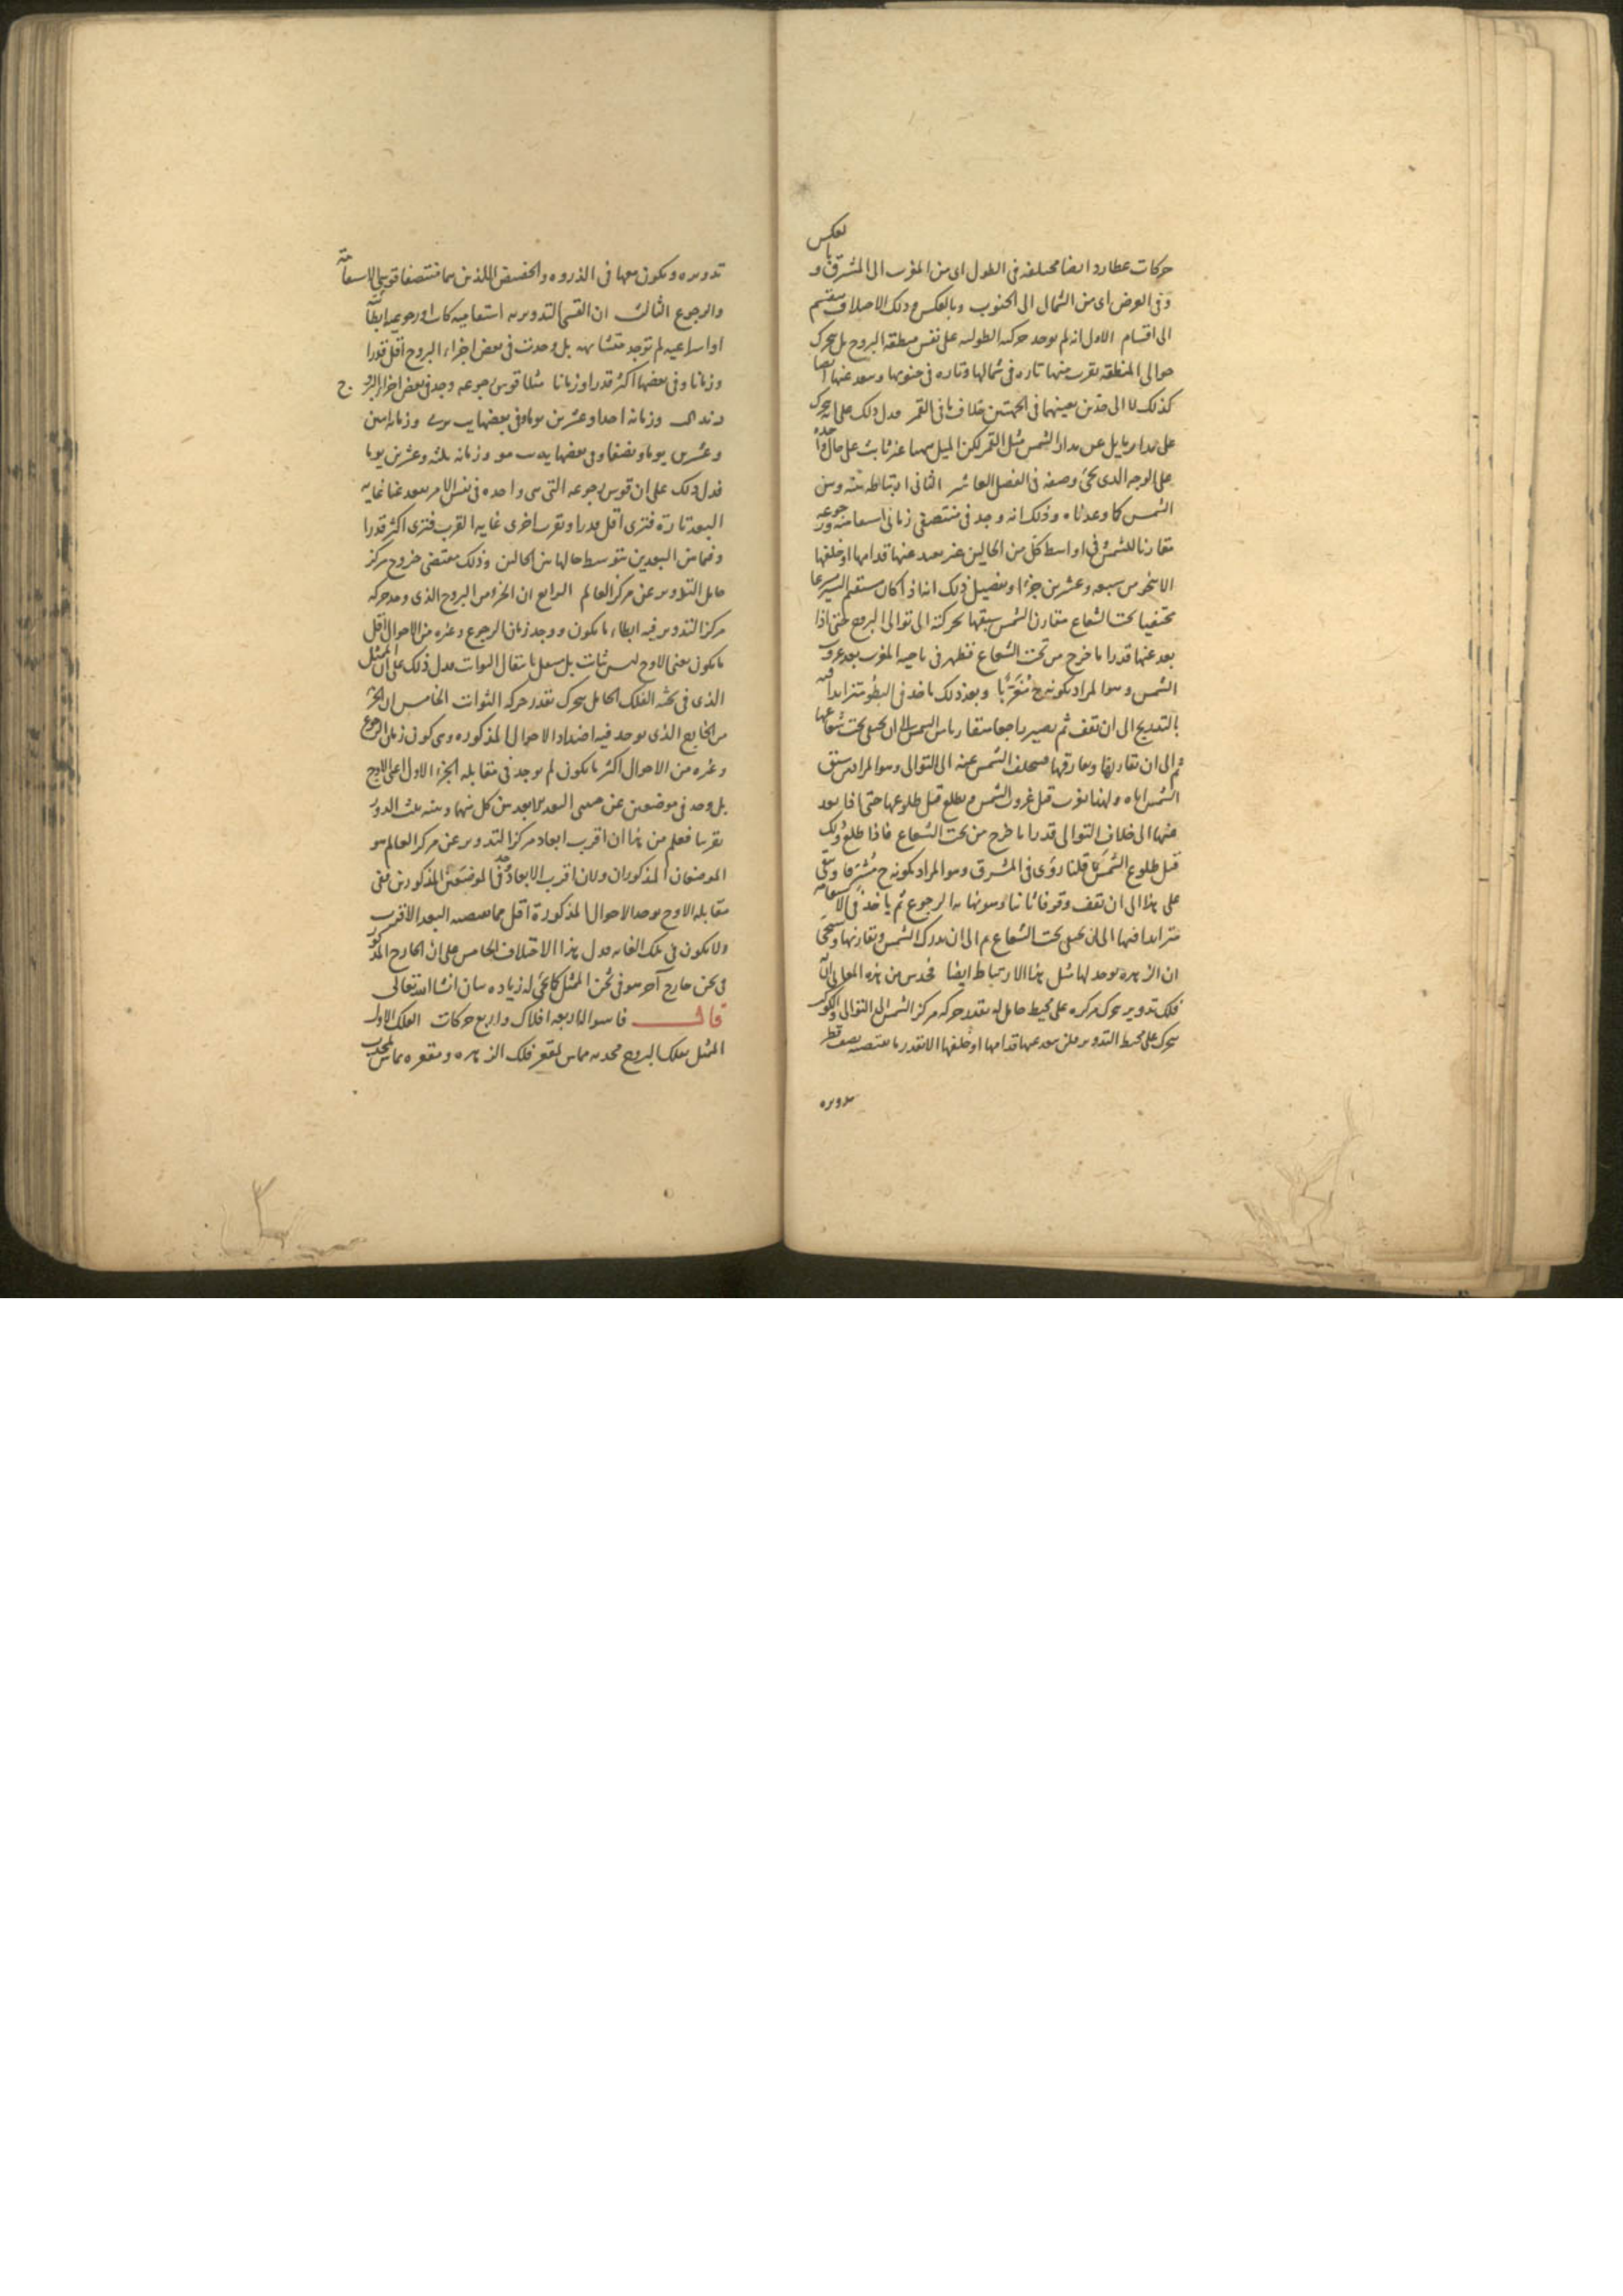 بعكس
حركات عطارد ايضا مختلفه فى الطول اى من المغرب الى المشرق و
وفى العرض اى من الشمال الى الجنوب وبالعكس وذلك الاختلاف ينقسم
الى اقسام الاول انه لم يوجد حركته الطوليه على نفس منطقه البروج بل يتحرك
حوالى المنطقه يقرب منها تاره فى شمالها وتاره فى جنوبها ويبعد عنها ايضا
كذلك لا الى حدين بعينهما فى الجهتين خلاف ما فى القمر فدل ذلك على انه يتحرك
على مدار مايل عن مدار الشمس مثل القمر لكن الميل ههنا غير ثابت على حال واحده
على الوجه الذى يجئ وصفه فى الفصل العاشر الثانى ارتباطه بينه وبين
الشمس كما وعدناه وذلك انه وجد فى منتصفى زمانى استقامته ورجوعه
مقارنا للشمس فى اواسط كل من الحالين غير بعيد عنها قدامها او خلفها
الا بنحو من سبعه وعشرين جزءا وتفصيل ذلك انه اذا كان مستقيم السير سريعا
مختفيا تحت الشعاع مقارن الشمس سبقها بحركته الى توالى البروج حتى اذا
بعد عنها قدرا ما خرج من تحت الشعاع فظهر فى ناحيه المغرب بعد غروب
الشمس وهو المراد بكونه ح مُغَرِّبًا وبعد ذلك ياخذ فى البطؤ متزايدا فيه
بالتدريج الى ان يقف ثم يصير راجعا متقاربا من الشمس الى ان يختفى تحت شعاعها
ثم الى ان تقارنها ويفارقها فيتخلف الشمس عنه الى التوالى وهو المراد من سبق
الشمس اياه ولهذا يغرب قبل غروب الشمس ويطلع قبل طلوعها حتى اذا بعد
عنها الى خلاف التوالى قدرا ما خرج من تحت الشعاع فاذا طلع وذلك
قبل طلوع الشمس كما قلنا روى فى المشرق وهو المراد بكونه ح مشرقا وبقى
على هذا الى ان يقف وقوفا ثانيا وهو نهايه الرجوع ثم ياخذ فى الاستقامه
متزايدا فيها الى ان يختفى تحت الشعاع ثم الى ان يدرك الشمس ويقارنها وسيجئ
ان الزهره يوجد لها مثل هذا الارتباط ايضا فحدس من هذه المعانى ان
فلك تدوير يتحرك مركزه على محيط حامل له بقدر حركه مركز الشمس الى التوالى والكوكب
يتحرك على محيط التدوير فلن يبعد عنها قدامها او خلفها الا بقدر ما يقتضيه نصف قطر
تدويره
تدويره ويكون معها فى الذروه والحضيض اللذين هما منتصفا قوسى الاستقامه
والرجوع الثالث ان القسى التدويريه استقاميه كانت او رجوعيه ابطائيه
او اسراعيه لم توجد متشابهه بل وجدت فى بعض اجزاء البروج اقل قدرا
وزمانا وفى بعضها اكثر قدرا وزمانا مثلا قوس رجوعه وجد فى بعض اجزاء البروج
وزمانه احدا وعشرين يوما وفى بعضها وزمانه اثنين
وعشرين يوما ونصفا وفى بعضها وزمانه ثلثه وعشرين يوما
فدل ذلك على ان قوس رجوعه التى هى واحده فى نفس الامر يبعد عنا غايه
البعد تارة فترى اقل قدرا وتقرب اخرى غايه القرب فترى اكثر قدرا
وفيما بين البعدين يتوسط حالها بين الحالين وذلك مقتضى خروج مركز
حامل التدوير عن مركز العالم الرابع ان الجزء من البروج الذى وجد حركه
مركز التدوير فيه ابطاء ما يكون ووجد زمان الرجوع وغيره من الاحوال اقل
ما يكون يعنى الاوج ليس بثابت بل ينتقل بانتقال الثوابت فدل ذلك على ان الممثل
الذى فى ثخنه الفلك الحامل يتحرك بقدر حركه الثوابت الخامس ان الجزء
من الخارج الذى يوجد فيه اضداد الاحوال المذكوره وهى كون زمان الرجوع
وغيره من الاحوال اكثر ما يكون لم يوجد فى مقابله الجزء الاول اعنى الاوج
بل وجد فى موضعين عن جنبى البعد الابعد بين كل منهما وبينه ثلث الدور
تقريبا فعلم من هذا ان اقرب ابعاد مركز التدوير عن مركز العالم هو
الموضعان المذكوران ولان اقرب الابعاد وجد فى الموضعين المذكورين ففى
مقابله الاوج يوجد الاحوال المذكورة اقل مما يقتضيه البعد الاقرب
ولا يكون فى تلك الغايه فدل هذا الاختلاف الخامس على ان الخارج المذكور
فى ثخن خارج آخر هو فى ثخن الممثل كما يجئ له زياده بيان انشا الله تعالى
قال فاسوا لما اربعه افلاك واربع حركات الفلك الاول
الممثل بفلك البروج محدبه مماس لمقعر فلك الزهره ومقعره مماس لمحدب